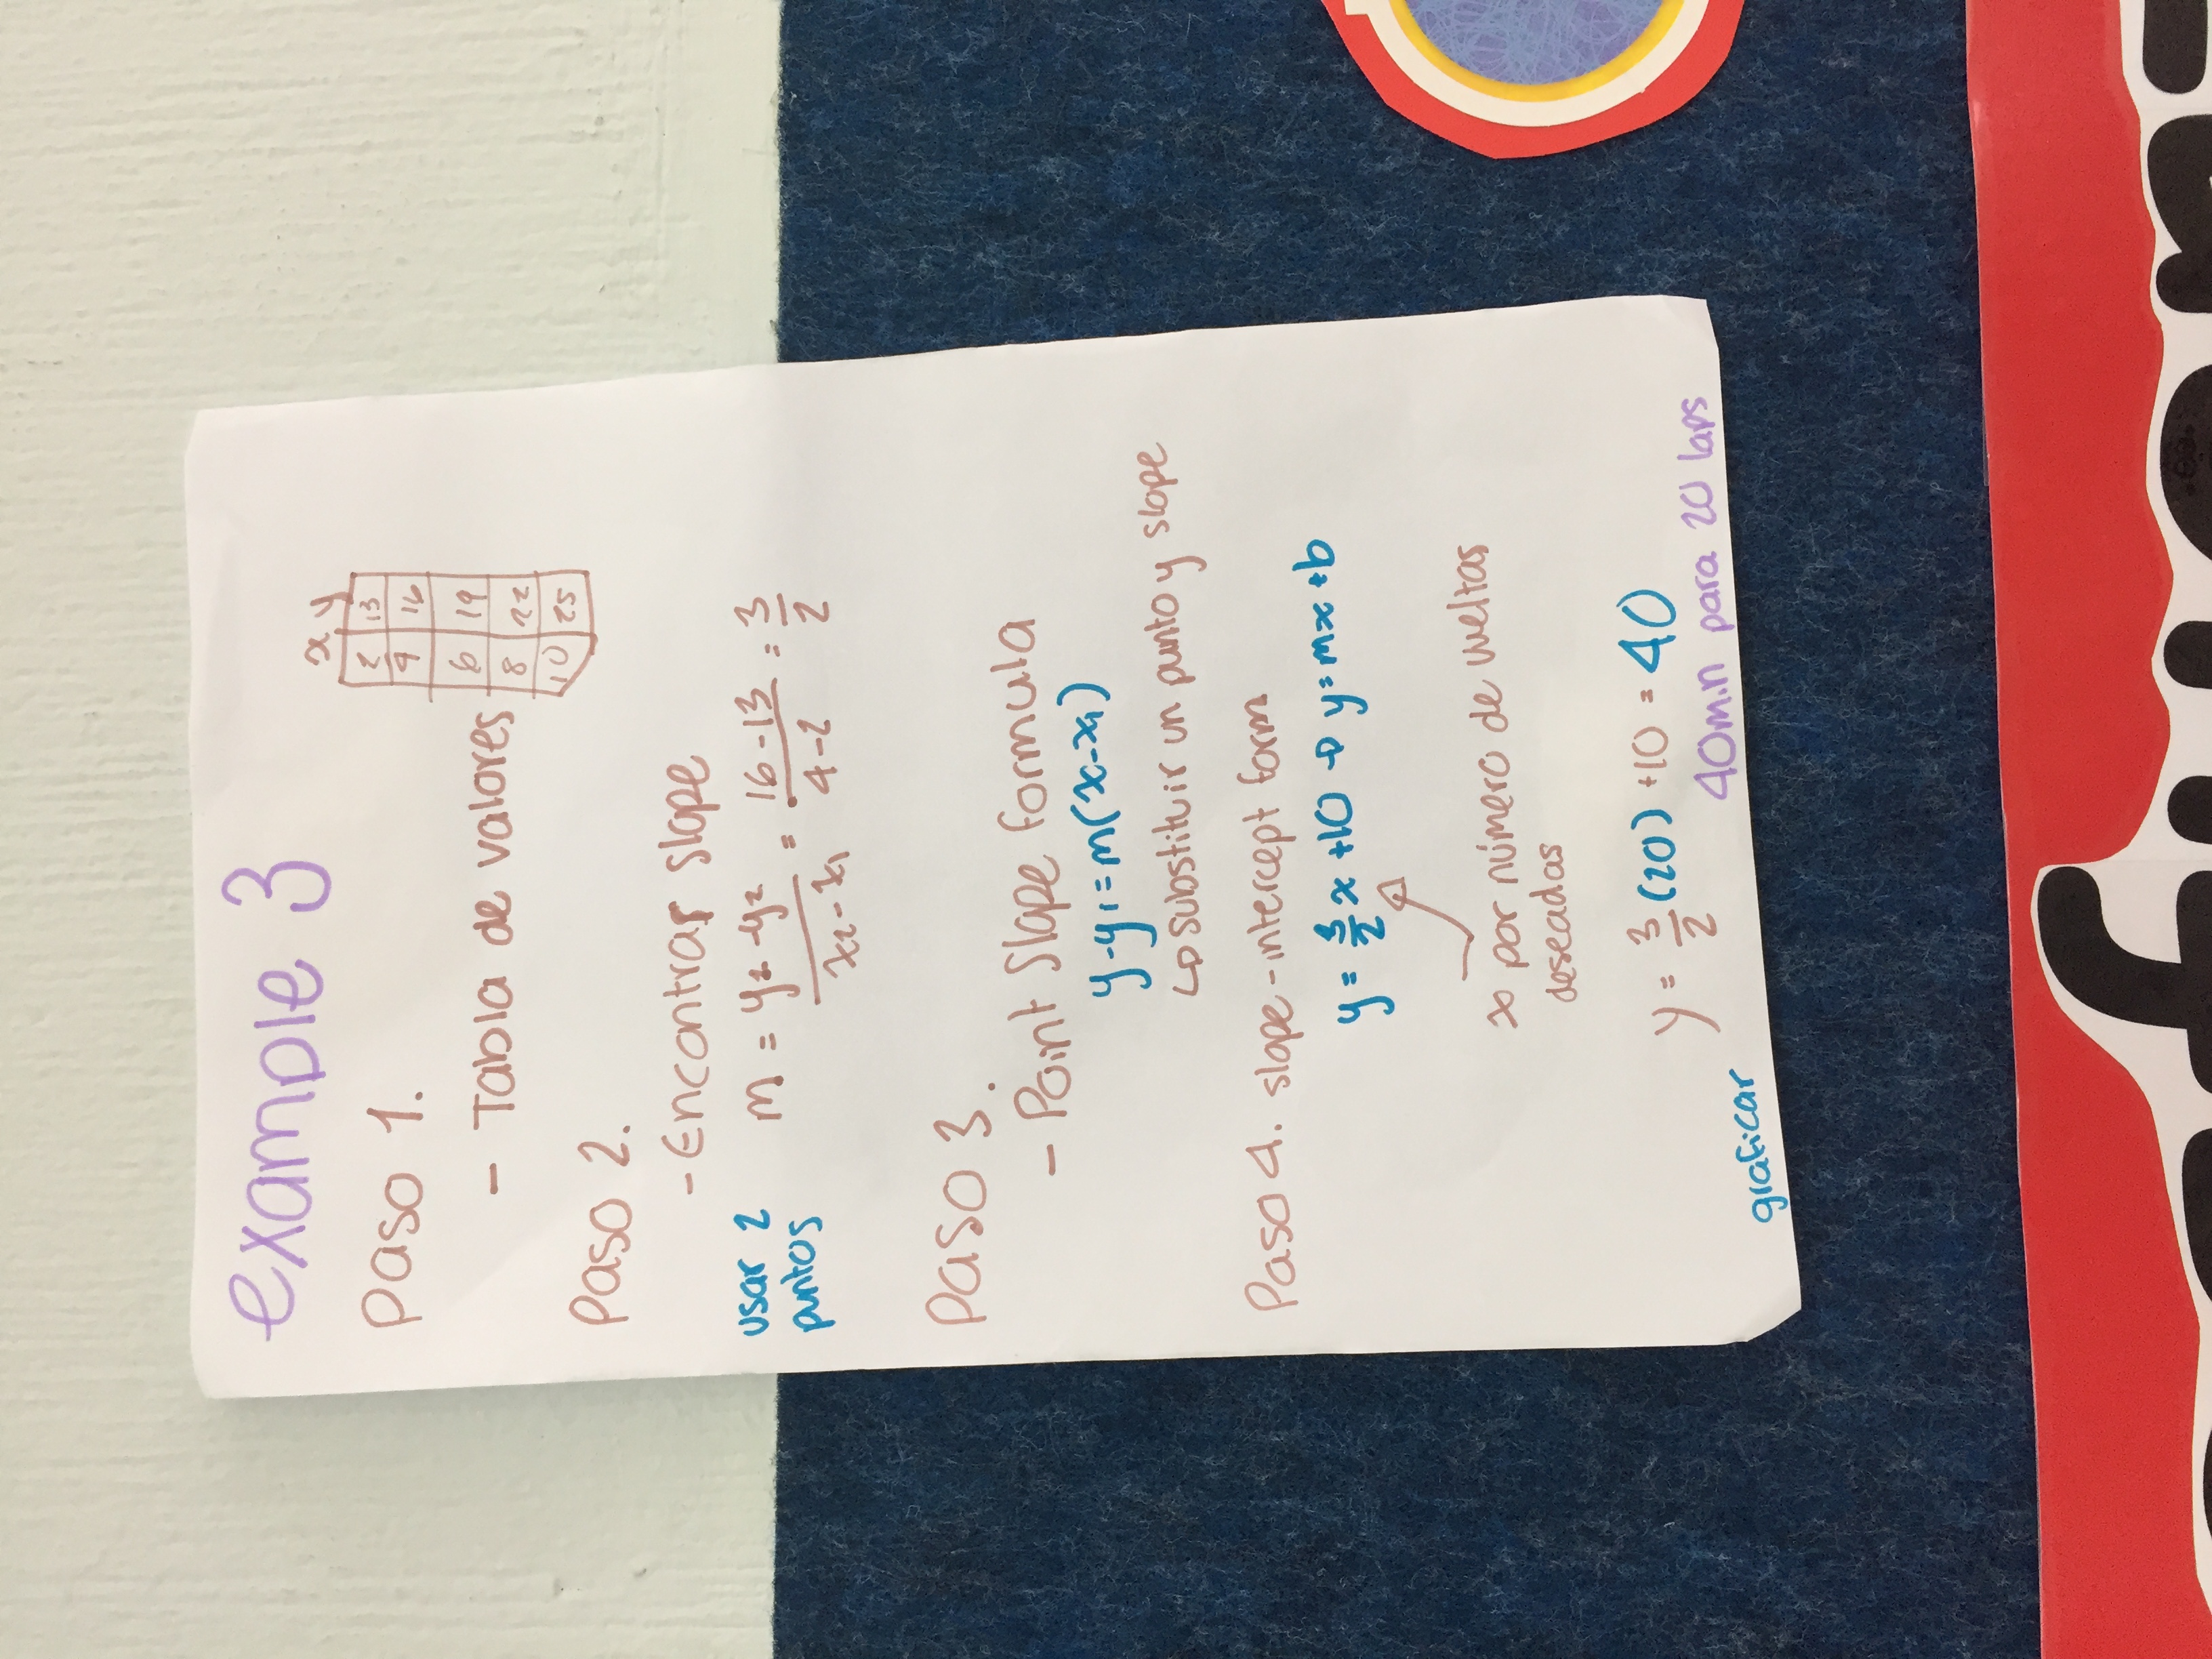 example 3
Paso 1.
x y
- Tabla de valores
2 13
4 16
6 19
8 22
10 25
Paso 2.
- Encontrar slope
usar 2
puntos
m = y2-y2 / x2-x1 = 16-13 / 4-2 = 3/2
Paso 3.
- Point Slope formula
y-y1=m(x-x1)
↳ substituir un punto y slope
Paso 4. slope-intercept form
y = 3/2 x +10 → y=mx+b
x por número de vueltas
deseadas
y = 3/2 (20) +10 = 40
40min para 20 laps
graficar